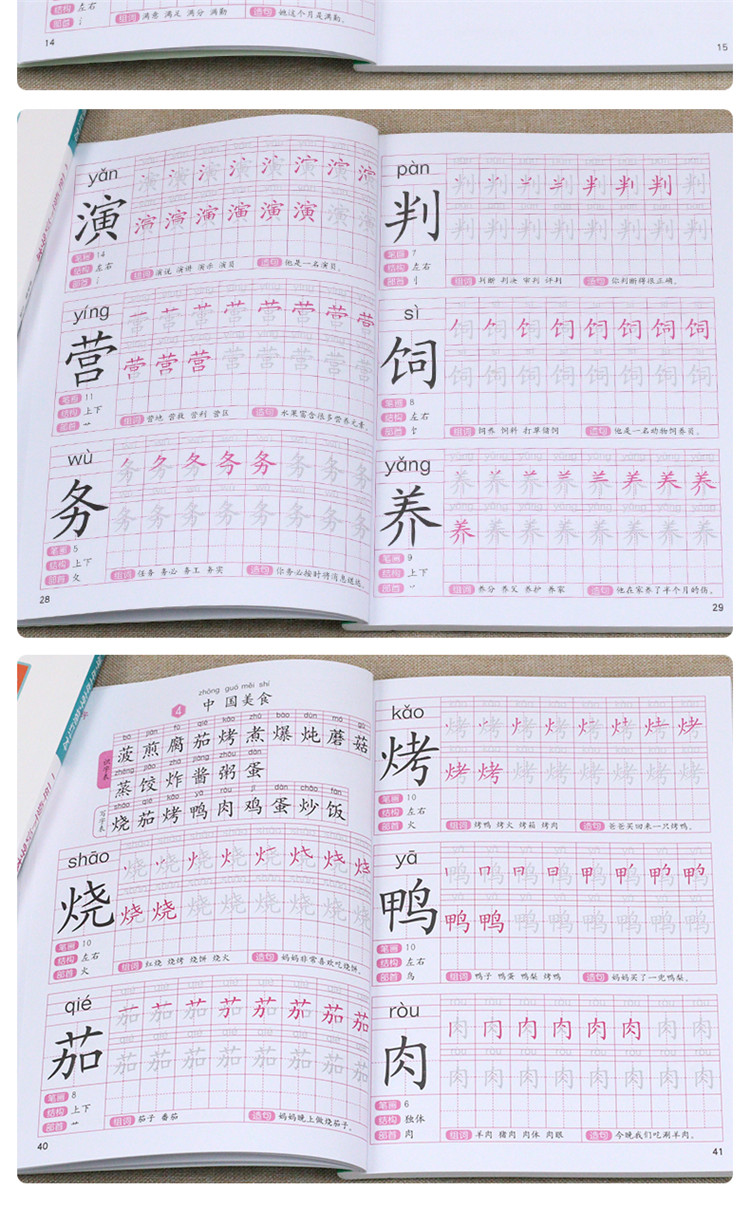 结构 左右
部首 氵
组词 满意 满足 满分 满勤
造句 她这个月是满勤。
14
15
yǎn
演
笔画 14
结构 左右
部首 氵
组词 演说 演讲 演示 演员
造句 他是一名演员。
yíng
营
笔画 11
结构 上下
部首 艹
组词 营地 营救 营利 营区
造句 水果富含很多营养元素。
wù
务
笔画 5
结构 上下
部首 夂
组词 任务 务必 务工 务实
造句 你务必按时将消息送达。
28
pàn
判
笔画 7
结构 左右
部首 刂
组词 判断 判决 审判 评判
造句 你判断得很正确。
sì
饲
笔画 8
结构 左右
部首 饣
组词 饲养 饲料 打草储饲
造句 他是一名动物饲养员。
yǎng
养
笔画 9
结构 上下
部首 丷
组词 养分 养父 养护 养家
造句 他在家养了半个月的伤。
29
zhōng guó měi shí
4 中国美食
识字表
bō jiān fǔ qié kǎo zhǔ bào dùn mó gū
菠 煎 腐 茄 烤 煮 爆 炖 蘑 菇
zhēng jiǎo zhá jiàng zhōu dàn
蒸 饺 炸 酱 粥 蛋
写字表
shāo qié kǎo yā ròu jī dàn chǎo fàn
烧 茄 烤 鸭 肉 鸡 蛋 炒 饭
shāo
烧
笔画 10
结构 左右
部首 火
组词 红烧 烧烤 烧饼 烧火
造句 妈妈非常喜欢吃烧饼。
qié
茄
笔画 8
结构 上下
部首 艹
组词 茄子 番茄
造句 妈妈晚上做烧茄子。
40
kǎo
烤
笔画 10
结构 左右
部首 火
组词 烤鸭 烤火 烤箱 烤肉
造句 爸爸买回来一只烤鸭。
yā
鸭
笔画 10
结构 左右
部首 鸟
组词 鸭子 鸭蛋 鸭梨 烤鸭
造句 妈妈买了一兜鸭梨。
ròu
肉
笔画 6
结构 独体
部首 肉
组词 羊肉 猪肉 肉体 肉眼
造句 今晚我们吃涮羊肉。
41